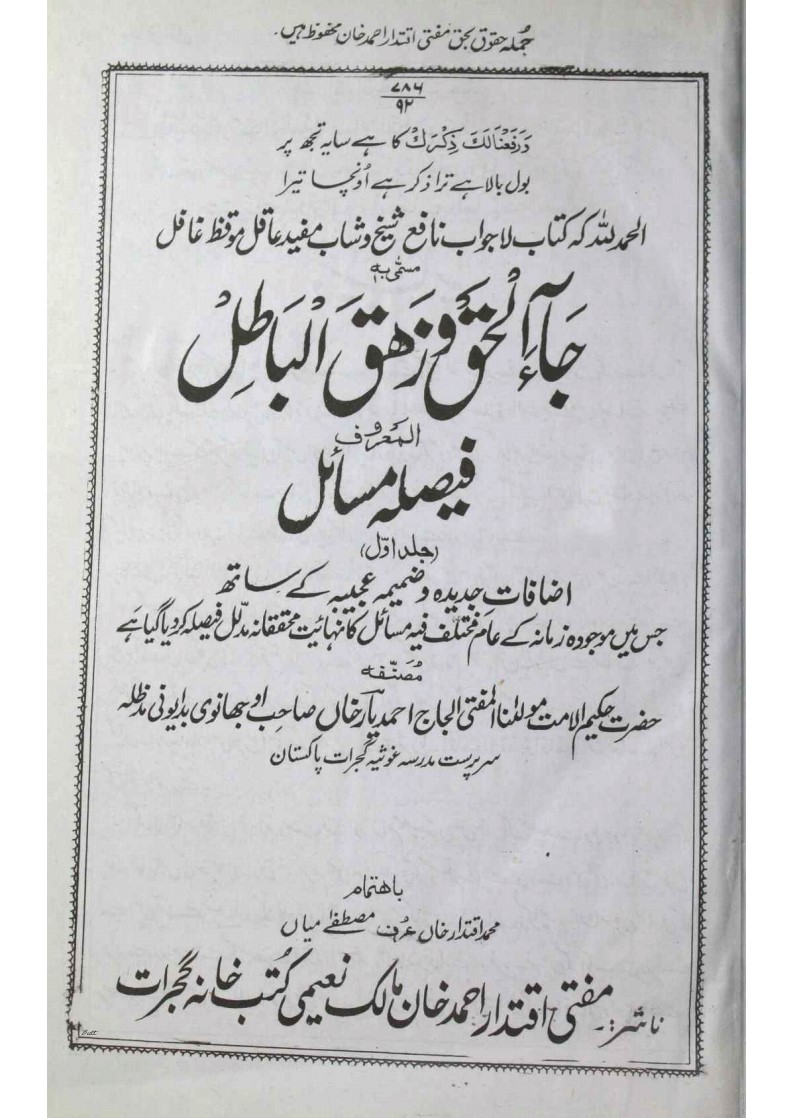 جُملہ حقوق بحق مفتی اقتدار احمد خان محفوظ ہیں.
۷۸۶
۹۲
وَرَفَعْنَا لَكَ ذِكْرَكَ کا ہے سایہ تجھ پر
بول بالا ہے ترا ذکر ہے اُونچا تیرا
الحمد للہ کہ کتاب لاجواب نافع شیخ و شاب مفید عاقل موقظ غافل
مسمّٰی بہ
جَآءَ الْحَقُّ وَزَهَقَ الْبَاطِلْ
المعروف
فیصلہ مسائل
(جلد اوّل)
اضافات جدیدہ و ضمیمہ عجیبہ کے ساتھ
جس میں موجودہ زمانہ کے عام مختلف فیہ مسائل کا نہائیت محققانہ مدلّل فیصلہ کر دیا گیا ہے
مُصَنّفہ
حضرت حکیم الامت مولٰنا المفتی الحاج احمد یار خاں صاحب اوجھانوی بدایونی مدظلہ
سرپرست مدرسہ غوثیہ گجرات پاکستان
باھتمام
محمد اقتدار خاں عرف مصطفٰے میاں
ناشر:۔ مفتی اقتدار احمد خان مالک نعیمی کُتب خانہ گجرات
Butt